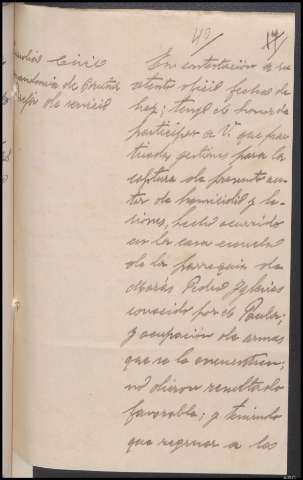 40
14
Guardia Civil
Comandancia de Coruña
Jefe de servicio
En contestación á su
atento oficio fecha de
hoy; tengo el honor de
participar a V. que prac
ticadas gestiones para la
captura de presunto au
tor de homicidio y le
siones, hecho ocurrido
en la casa escuela
de la parroquia de
Pedro Yglesias
conocido por el Paula;
y ocupación de armas
que se le encuentren;
no dieron resultado
favorable; y teniendo
que regresar a la